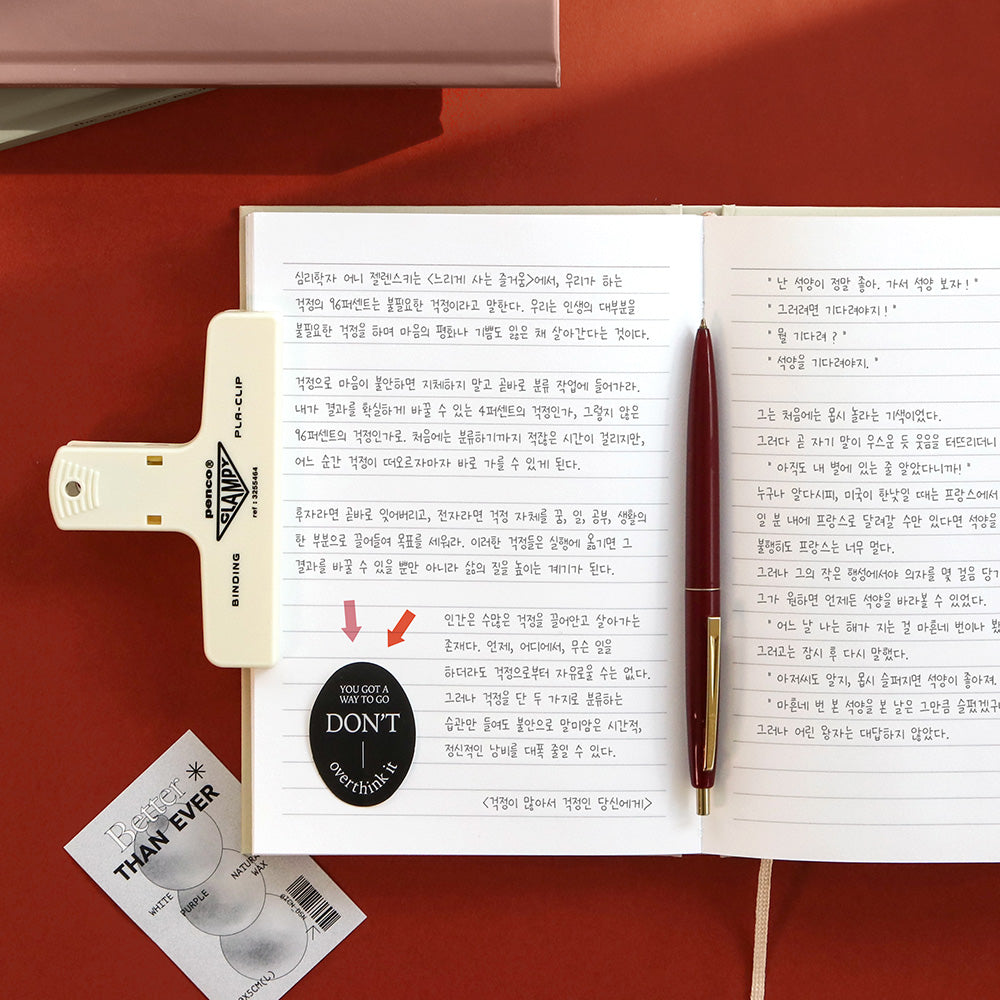 심리학자 어니 젤렌스키는 <느리게 사는 즐거움>에서, 우리가 하는
걱정의 96퍼센트는 불필요한 걱정이라고 말한다. 우리는 인생의 대부분을
불필요한 걱정을 하며 마음의 평화나 기쁨도 잃은 채 살아간다는 것이다.
걱정으로 마음이 불안하면 지체하지 말고 곧바로 분류 작업에 들어가라.
내가 결과를 확실하게 바꿀 수 있는 4퍼센트의 걱정인가, 그렇지 않은
96퍼센트의 걱정인가로. 처음에는 분류하기까지 적잖은 시간이 걸리지만,
어느 순간 걱정이 떠오르자마자 바로 가를 수 있게 된다.
후자라면 곧바로 잊어버리고, 전자라면 걱정 자체를 꿈, 일, 공부, 생활의
한 부분으로 끌어들여 목표를 세워라. 이러한 걱정들은 실행에 옮기면 그
결과를 바꿀 수 있을 뿐만 아니라 삶의 질을 높이는 계기가 된다.
인간은 수많은 걱정을 끌어안고 살아가는
존재다. 언제, 어디에서, 무슨 일을
하더라도 걱정으로부터 자유로울 수는 없다.
그러나 걱정을 단 두 가지로 분류하는
습관만 들여도 불안으로 말미암은 시간적,
정신적인 낭비를 대폭 줄일 수 있다.
<걱정이 많아서 걱정인 당신에게>
YOU GOT A
WAY TO GO
DON'T
overthink it
" 난 석양이 정말 좋아. 가서 석양 보자! "
" 그러려면 기다려야지! "
" 뭘 기다려? "
" 석양을 기다려야지. "
그는 처음에는 몹시 놀라는 기색이었다.
그러다 곧 자기 말이 우스운 듯 웃음을 터뜨리더니
" 아직도 내 별에 있는 줄 알았다니까! "
누구나 알다시피, 미국이 한낮일 때는 프랑스에서
일 분 내에 프랑스로 달려갈 수만 있다면 석양을
불행히도 프랑스는 너무 멀다.
그러나 그의 작은 행성에서야 의자를 몇 걸음 당기
그가 원하면 언제든 석양을 바라볼 수 있었다.
" 어느 날 나는 해가 지는 걸 마흔네 번이나 봤
그러고는 잠시 후 다시 말했다.
" 아저씨도 알지, 몹시 슬퍼지면 석양이 좋아져.
" 마흔네 번 본 석양을 본 날은 그만큼 슬펐겠구
그러나 어린 왕자는 대답하지 않았다.
PLA-CLIP
penco®
CLAMPY
ref : 3255464
BINDING
Better
THAN EVER
WHITE
PURPLE
NATURA
WAX